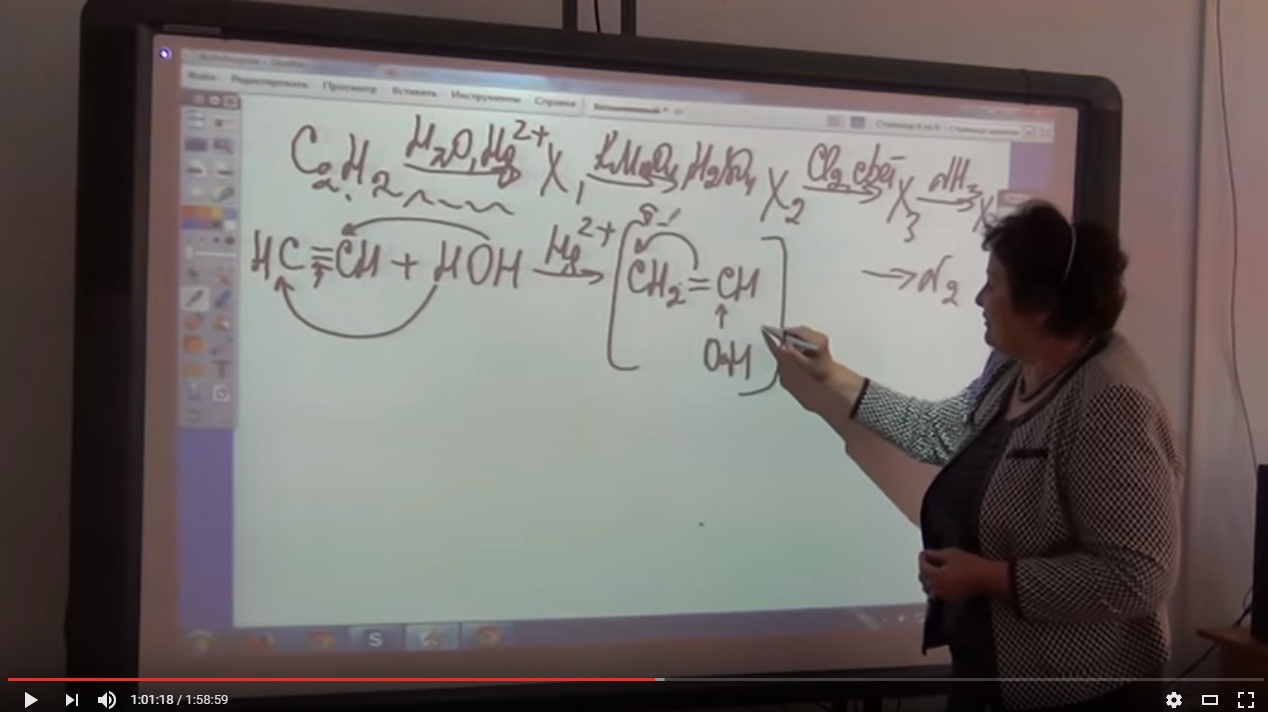 Файл Редактировать Просмотр Вставить Инструменты Справка
C2H2 H2O, Hg2+ X1 KMnO4, H2SO4 X2 Cl2, свет X3 NH3
HC≡CH + HOH Hg2+ [CH2=CH δ-
OH]
S
1:01:18 / 1:58:59